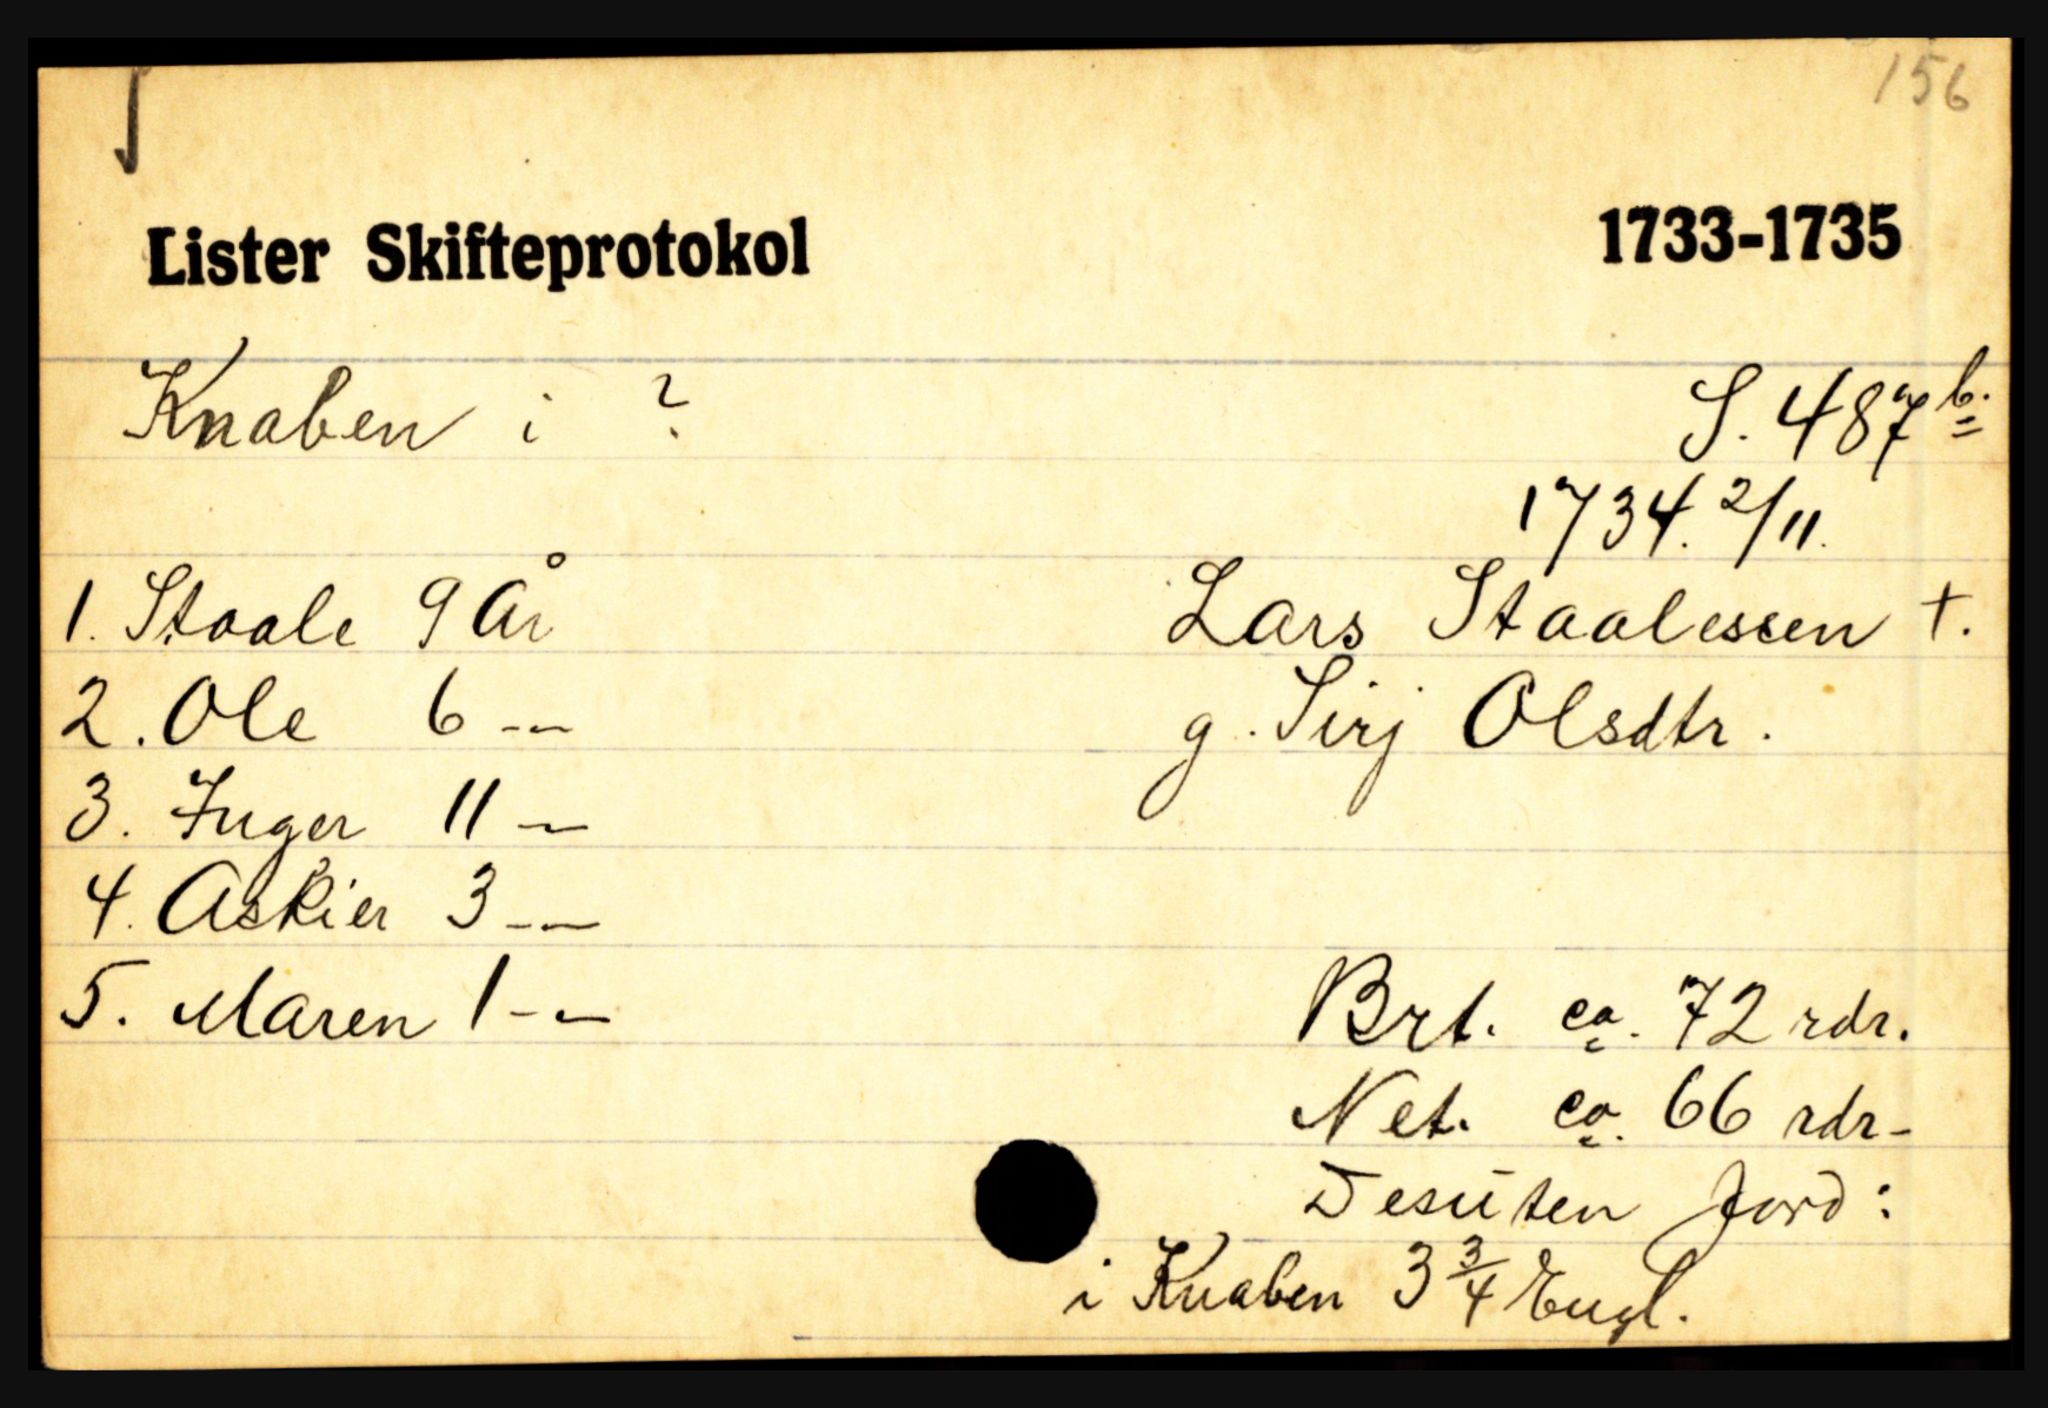 156
Lister Skifteprotokol 1733-1735
Knaben i ? S. 487 b.
1734. 2/11.
1. Staale 9 År Lars Staalessen †.
2. Ole 6 -- g. Sirj Olsdtr.
3. Inger 11 --
4. Askier 3 --
5. Maren 1 -- Brt. ca. 72 rdr.
Net. ca. 66 rdr-
Desuten Jord:
i Knaben 3 3/4 Engl.